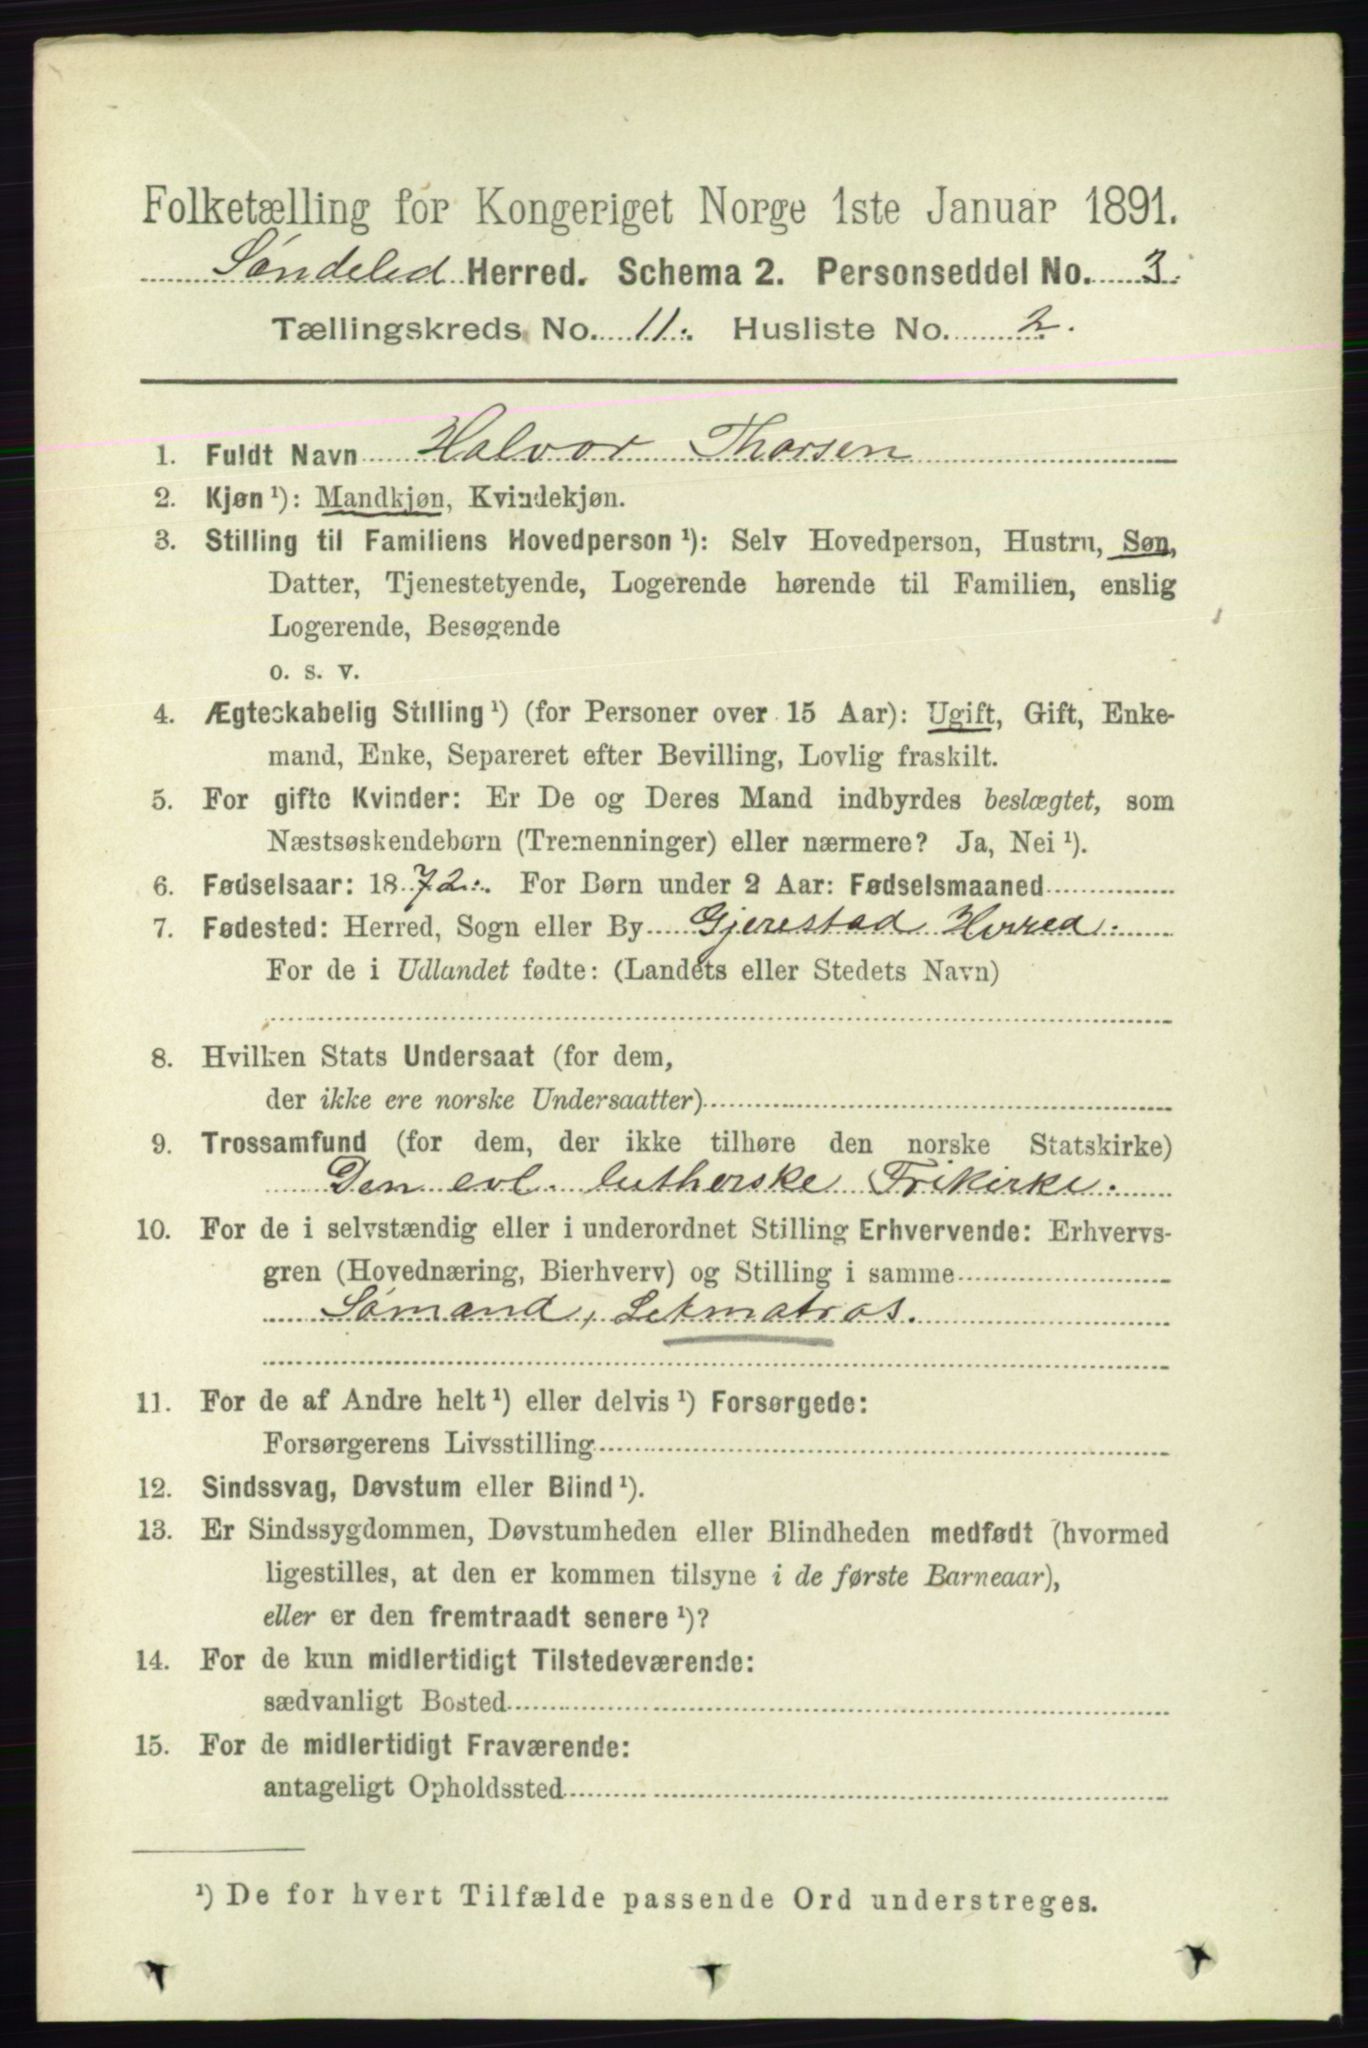 Folketælling for Kongeriget Norge 1ste Januar 1891.
Søndeled Herred. Schema 2. Personseddel No. 3.
Tællingskreds No. 11. Husliste No. 2.
1. Fuldt Navn Halvor Thorsen
2. Kjøn ¹): Mandkjøn, Kvindekjøn.
3. Stilling til Familiens Hovedperson ¹): Selv Hovedperson, Hustru, Søn,
Datter, Tjenestetyende, Logerende hørende til Familien, enslig
Logerende, Besøgende
o. s. v.
4. Ægteskabelig Stilling ¹) (for Personer over 15 Aar): Ugift, Gift, Enke-
mand, Enke, Separeret efter Bevilling, Lovlig fraskilt.
5. For gifte Kvinder: Er De og Deres Mand indbyrdes beslægtet, som
Næstsøskendebørn (Tremenninger) eller nærmere? Ja, Nei ¹).
6. Fødselsaar: 1872. For Børn under 2 Aar: Fødselsmaaned
7. Fødested: Herred, Sogn eller By Gjerestad Herred.
For de i Udlandet fødte: (Landets eller Stedets Navn)
8. Hvilken Stats Undersaat (for dem,
der ikke ere norske Undersaatter)
9. Trossamfund (for dem, der ikke tilhøre den norske Statskirke)
Den evl. lutherske Frikirke.
10. For de i selvstændig eller i underordnet Stilling Erhvervende: Erhvervs-
gren (Hovednæring, Bierhverv) og Stilling i samme
Sømand, Letmatros.
11. For de af Andre helt ¹) eller delvis ¹) Forsørgede:
Forsørgerens Livsstilling
12. Sindssvag, Døvstum eller Blind ¹).
13. Er Sindssygdommen, Døvstumheden eller Blindheden medfødt (hvormed
ligestilles, at den er kommen tilsyne i de første Barneaar),
eller er den fremtraadt senere ¹)?
14. For de kun midlertidigt Tilstedeværende:
sædvanligt Bosted
15. For de midlertidigt Fraværende:
antageligt Opholdssted
¹) De for hvert Tilfælde passende Ord understreges.